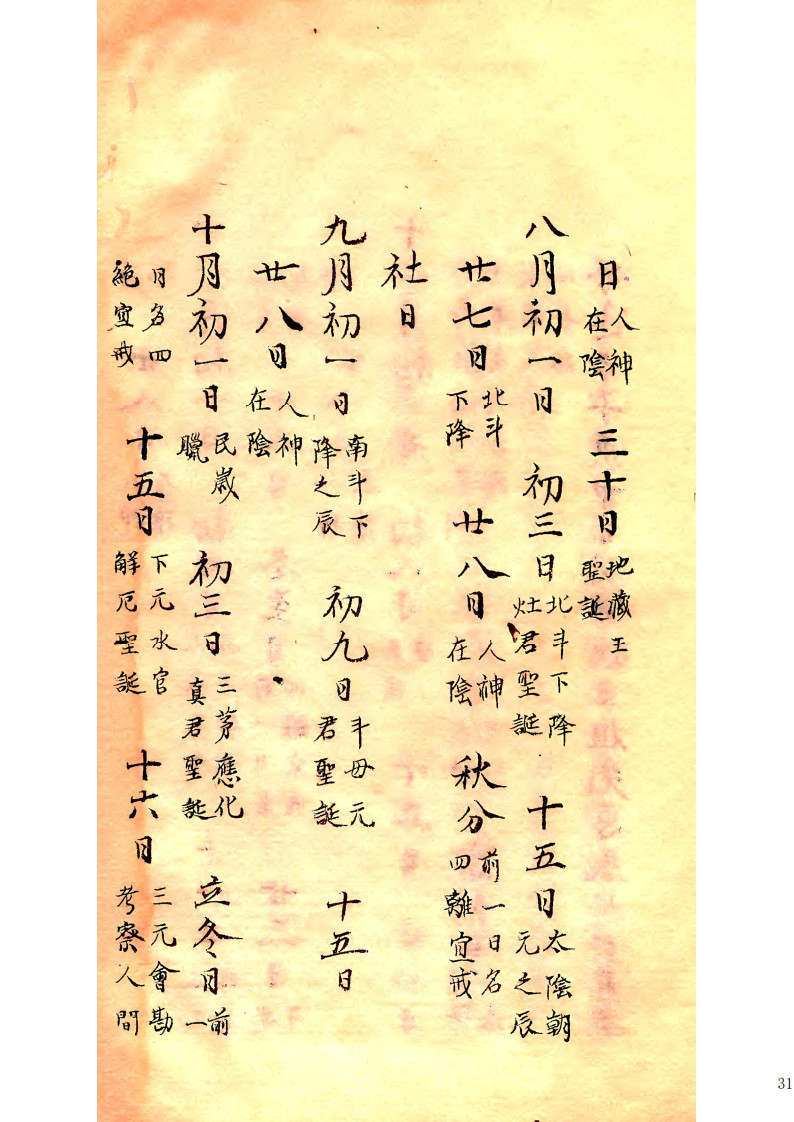 日人神在陰三十日地藏王聖誕
八月初一日初三日北斗下降灶君聖誕十五日太陰朝元之辰
廿七日北斗下降廿八日人神在陰秋分前一日名四離宜戒
社日
九月初一日南斗下降之辰初九日斗母元君聖誕十五日
廿八日人神在陰
十月初一日民歲臘初三日三茅應化真君聖誕立冬日前一
日名四絕宜戒十五日下元水官解厄聖誕十六日三元會勘考察人間
31